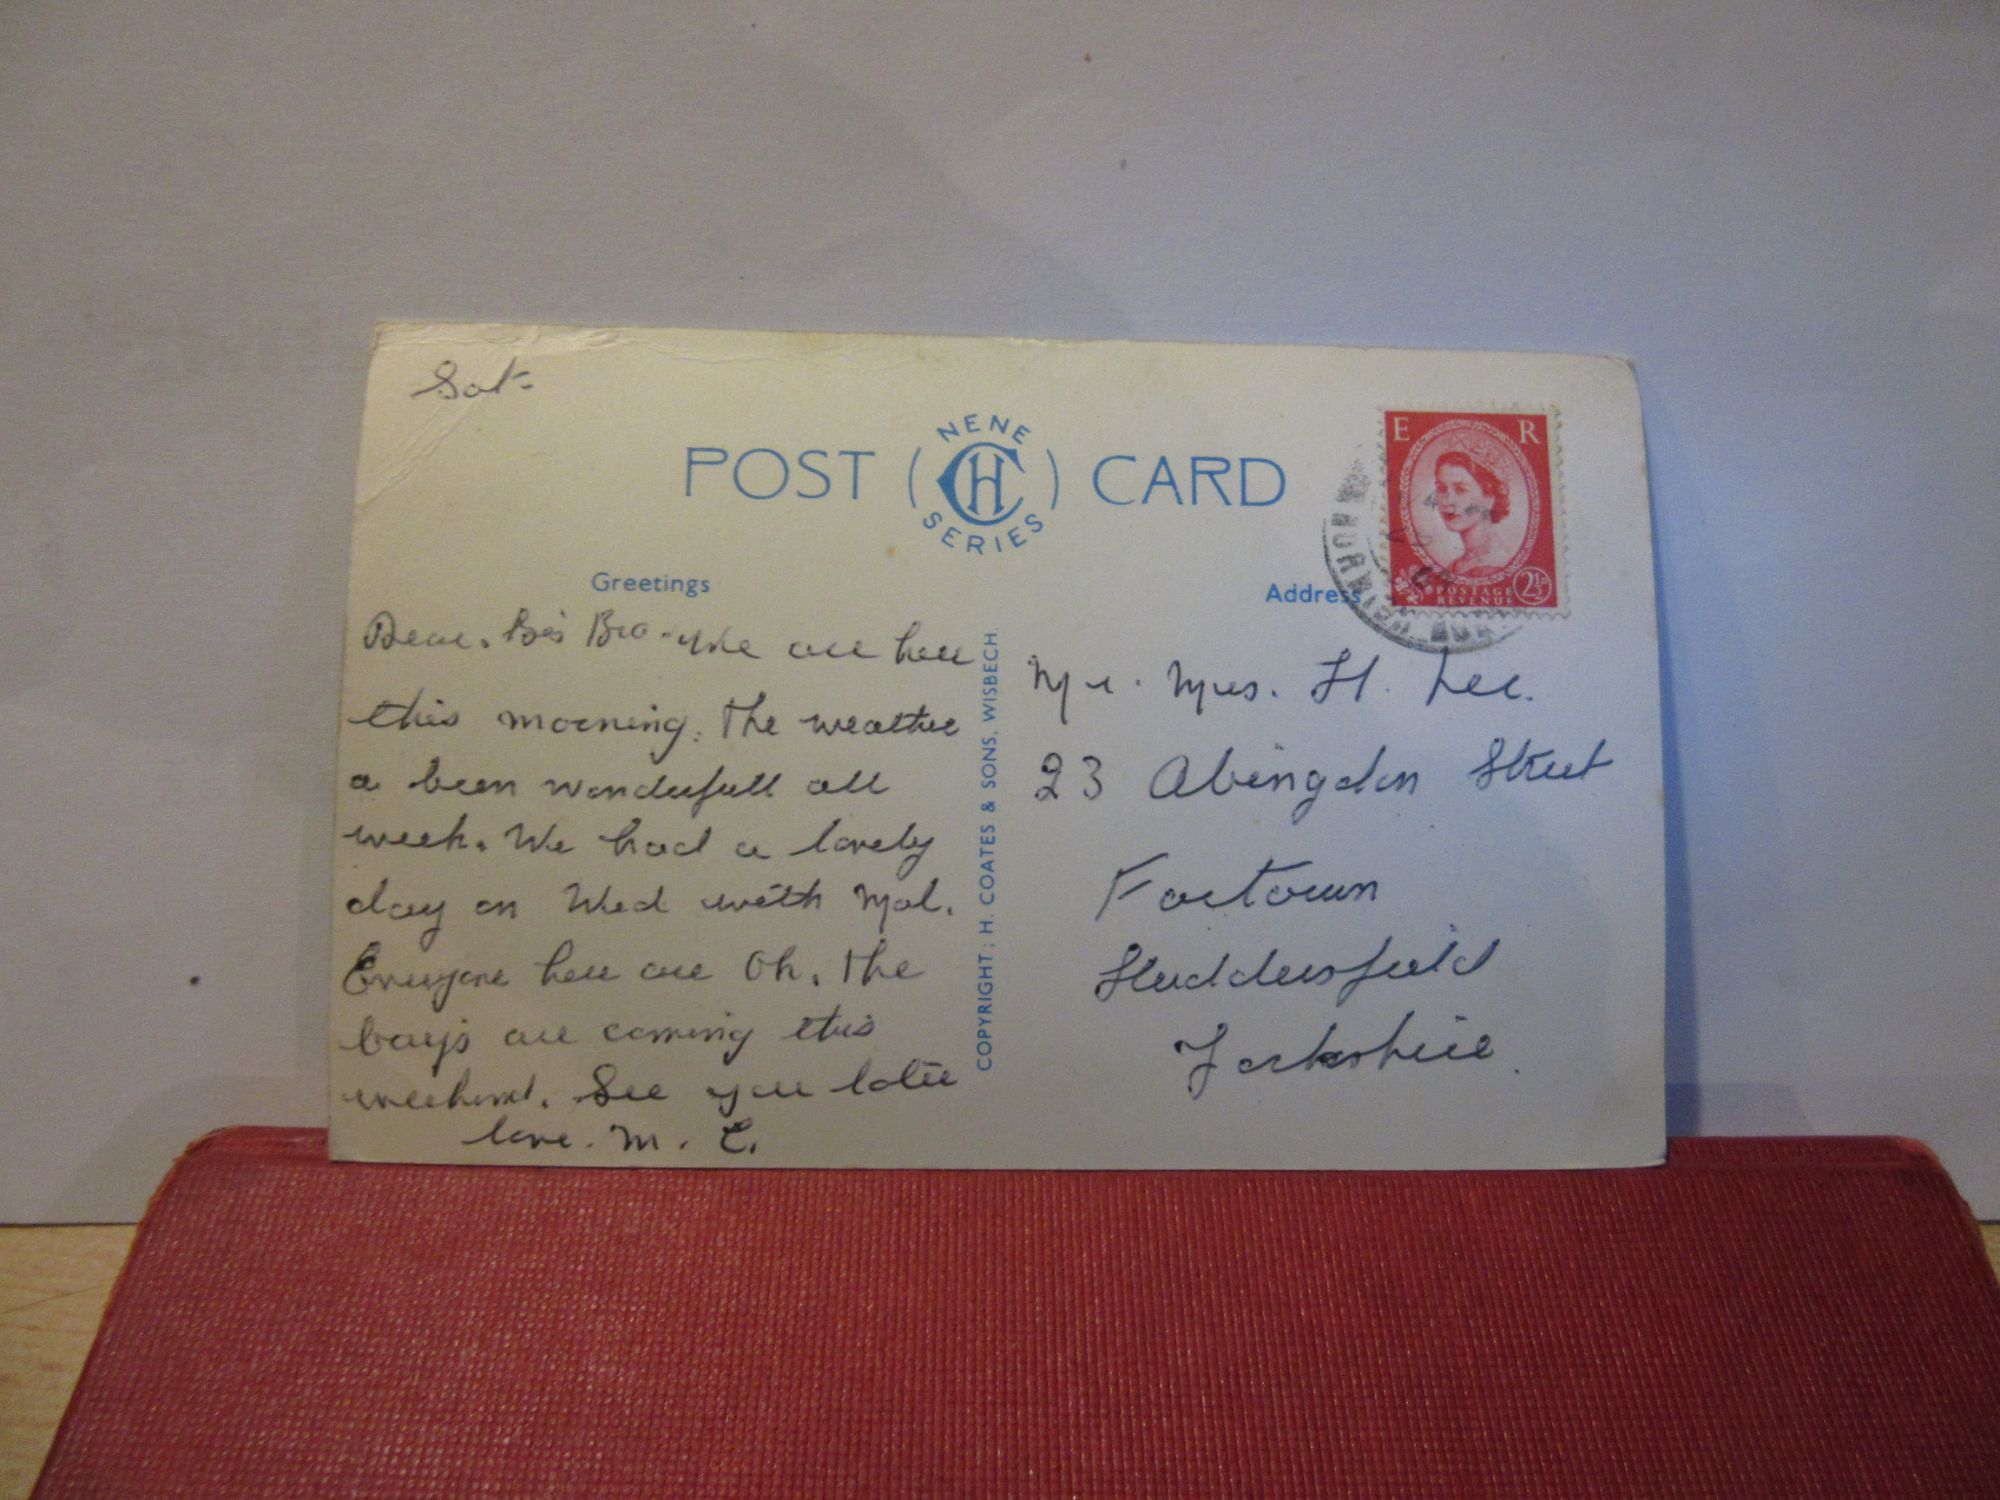 Sat-
POST CARD
NENE
CH
SERIES
Greetings
Address
E R
POSTAGE
REVENUE
2½D
Dear. Bro - We are here
this morning. The weather
a been wonderfull all
week. We had a lovely
day on Wed with Mal.
Everyone here are Oh. The
boys are coming this
weekend. See you later
love. M. C.
COPYRIGHT: H. COATES & SONS, WISBECH.
Mr. Mrs. H. Lee.
23 Abingdon Street
Fartown
Huddersfield
Yorkshire.